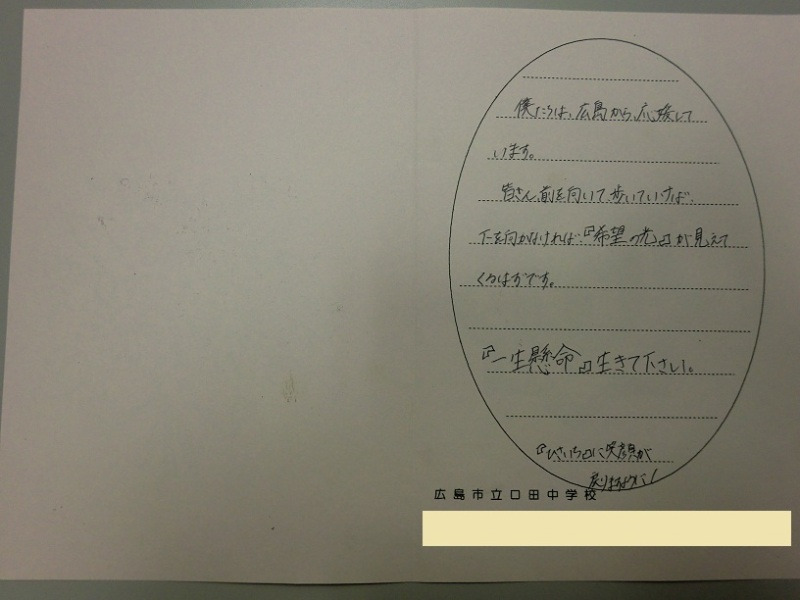 僕たちは、広島から、応援して
います。
皆さん前を向いて歩いていけば、
下を向かなければ、『希望の光』が見えて
くるはずです。
『一生懸命』生きて下さい。
『ひさいち』に笑顔が
戻りますように!
広島市立口田中学校